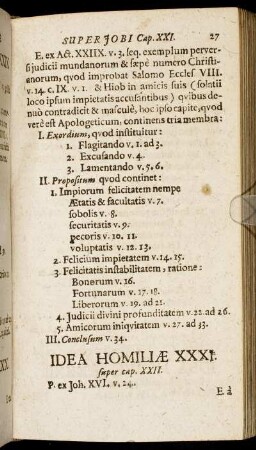 SUPER JOBI Cap. XXI. 27
E. ex Act. XXIIX. v. 3. seq. exemplum perver-
si judicii mundanorum & sæpè numero Christi-
anorum, quod improbat Salomo Eccles VIII.
v. 14. c. IX. v. 1. & Hiob in amicis suis (solatii
loco ipsum impietatis accusantibus) qvibus de-
nuò contradicit & masculè, hoc ipso capite, qvod
verè est Apologeticum, continens tria membra:
I. Exordium, qvod instituitur:
1. Flagitando v. 1. ad 3.
2. Excusando v. 4.
3. Lamentando v. 5. 6.
II. Propositum qvod continet:
1. Impiorum felicitatem nempe
Ætatis & facultatis v. 7.
sobolis v. 8.
securitatis v. 9.
pecoris v. 10. 11.
voluptatis v. 12. 13.
2. Felicium impietatem v. 14. 15.
3. Felicitatis instabilitatem, ratione:
Bonorum v. 16.
Fortunarum v. 17. 18.
Liberorum v. 19. ad 21.
4. Judicii divini profunditatem v. 22. ad 26.
5. Amicorum iniqvitatem v. 27. ad 33.
III. Conclusum v. 34.
IDEA HOMILIÆ XXXI.
super cap. XXII.
P. ex Joh. XVI. v. 24.